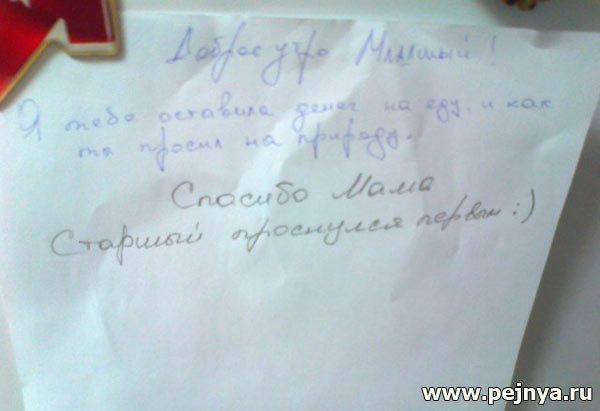 Доброе утро Младший!
Я тебе оставила денег на еду, и как
ты просил на природу.
Спасибо Мама
Старший проснулся первым :)
www.pejnya.ru